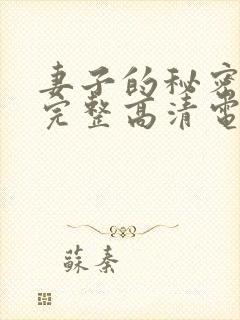 妻子的秘密
完整高清電
蘇秦